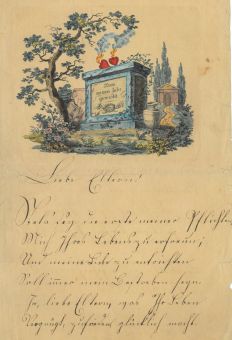 neuen Jahr
Liebe Eltern!
Stets sey die erste meiner Pflichten,
Mich Ihres Lebens zu erfreun;
Und meine Liebe zu entrichten
Soll immer mein Bestreben seyn.
Ja, liebe Eltern, was Ihr Leben
Vergnügt, zufrieden, glücklich macht